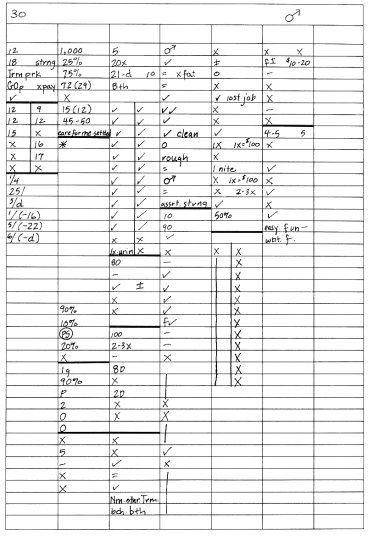 30 ♂
12 1,000 5 ♂ X X X
18 strng 25% 20x ✓ ± f± $10-20
Trm prk 75% 21-d 10 = x fat 0 –
GOp xpay 72 (29) 8th = X X
✓ X ✓ ✓ lost job X
12 9 15 (12) ✓ ✓ ✓✓ X –
12 12 45-50 ✓ ✓ ✓ ✓ X
15 X care for me settld ✓ ✓ ✓ clean ✓ 4-5 5
X 16 * ✓ ✓ 0 1X 1x=$100 X
X 17 ✓ ✓ rough X
X X ✓ ✓ = 1 nite ✓
1/4 ✓ ✓ ♂ X 1x=$100 X
25/ ✓ ✓ = X 2-3x ✓
3/d ✓ ✓ assrt. strvng ✓ X
1/(-16) ✓ ✓ 10 50% ✓
5/(-22) ✓ ✓ 90 easy fun –
6/(-d) X X ✓ wbt. f.
1x.urin X X X X
80 – X
– ✓ X
✓ ± ✓ X
X ✓ X
90% X ✓ X
10% f✓ X
(P5) 100 – X
20% 2-3x – X
X – X X
1g 80
90% X
P 20
2 X X
0 X X
0
X X
5 X ✓
– ✓ X
X =
X ✓
Nrn. otar Trm
bch. bth